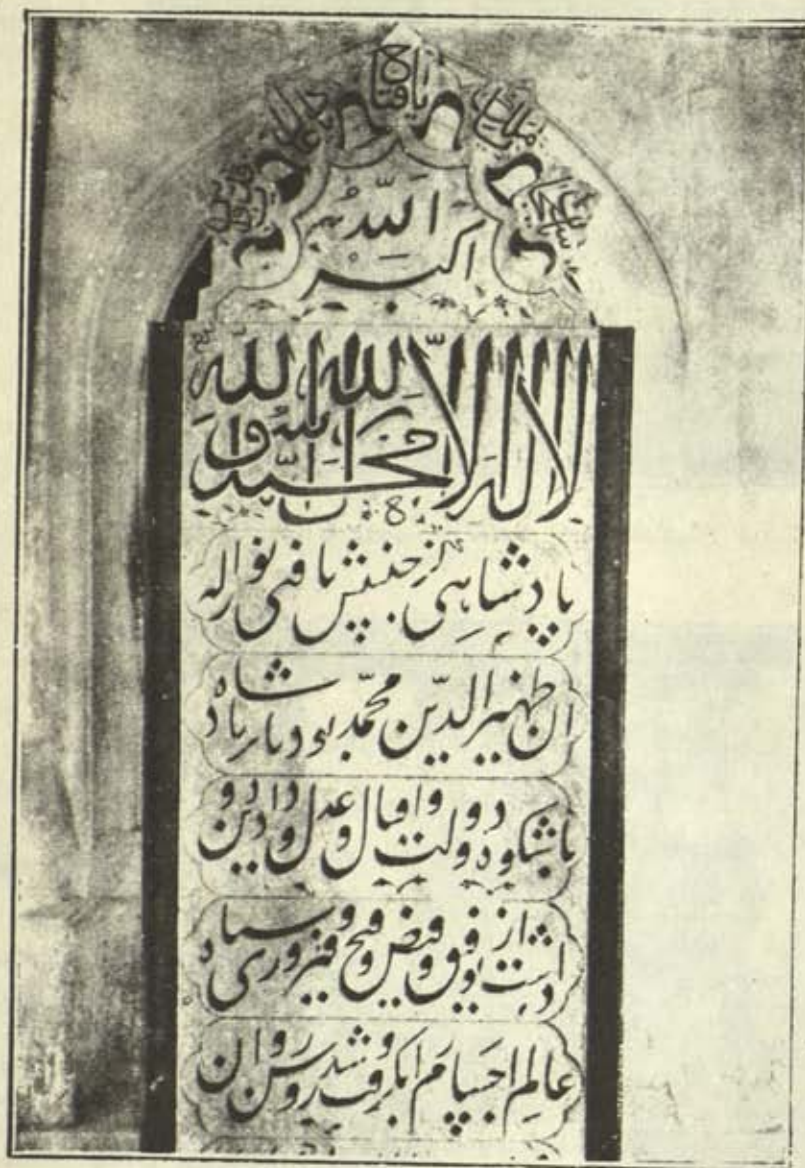 یا فتاح
الله
اکبر
لا اله الا الله محمد رسول الله
پادشاهی کز جبینش تافتی نور اله
آن ظهیر الدین محمد بود بابر پادشاه
با شکوه و دولت و اقبال و عدل و داد و دین
داشت از توفیق و فیض و فتح و فیروزی سپاه
عالم اجسام را بگرفت و شد روشن روان